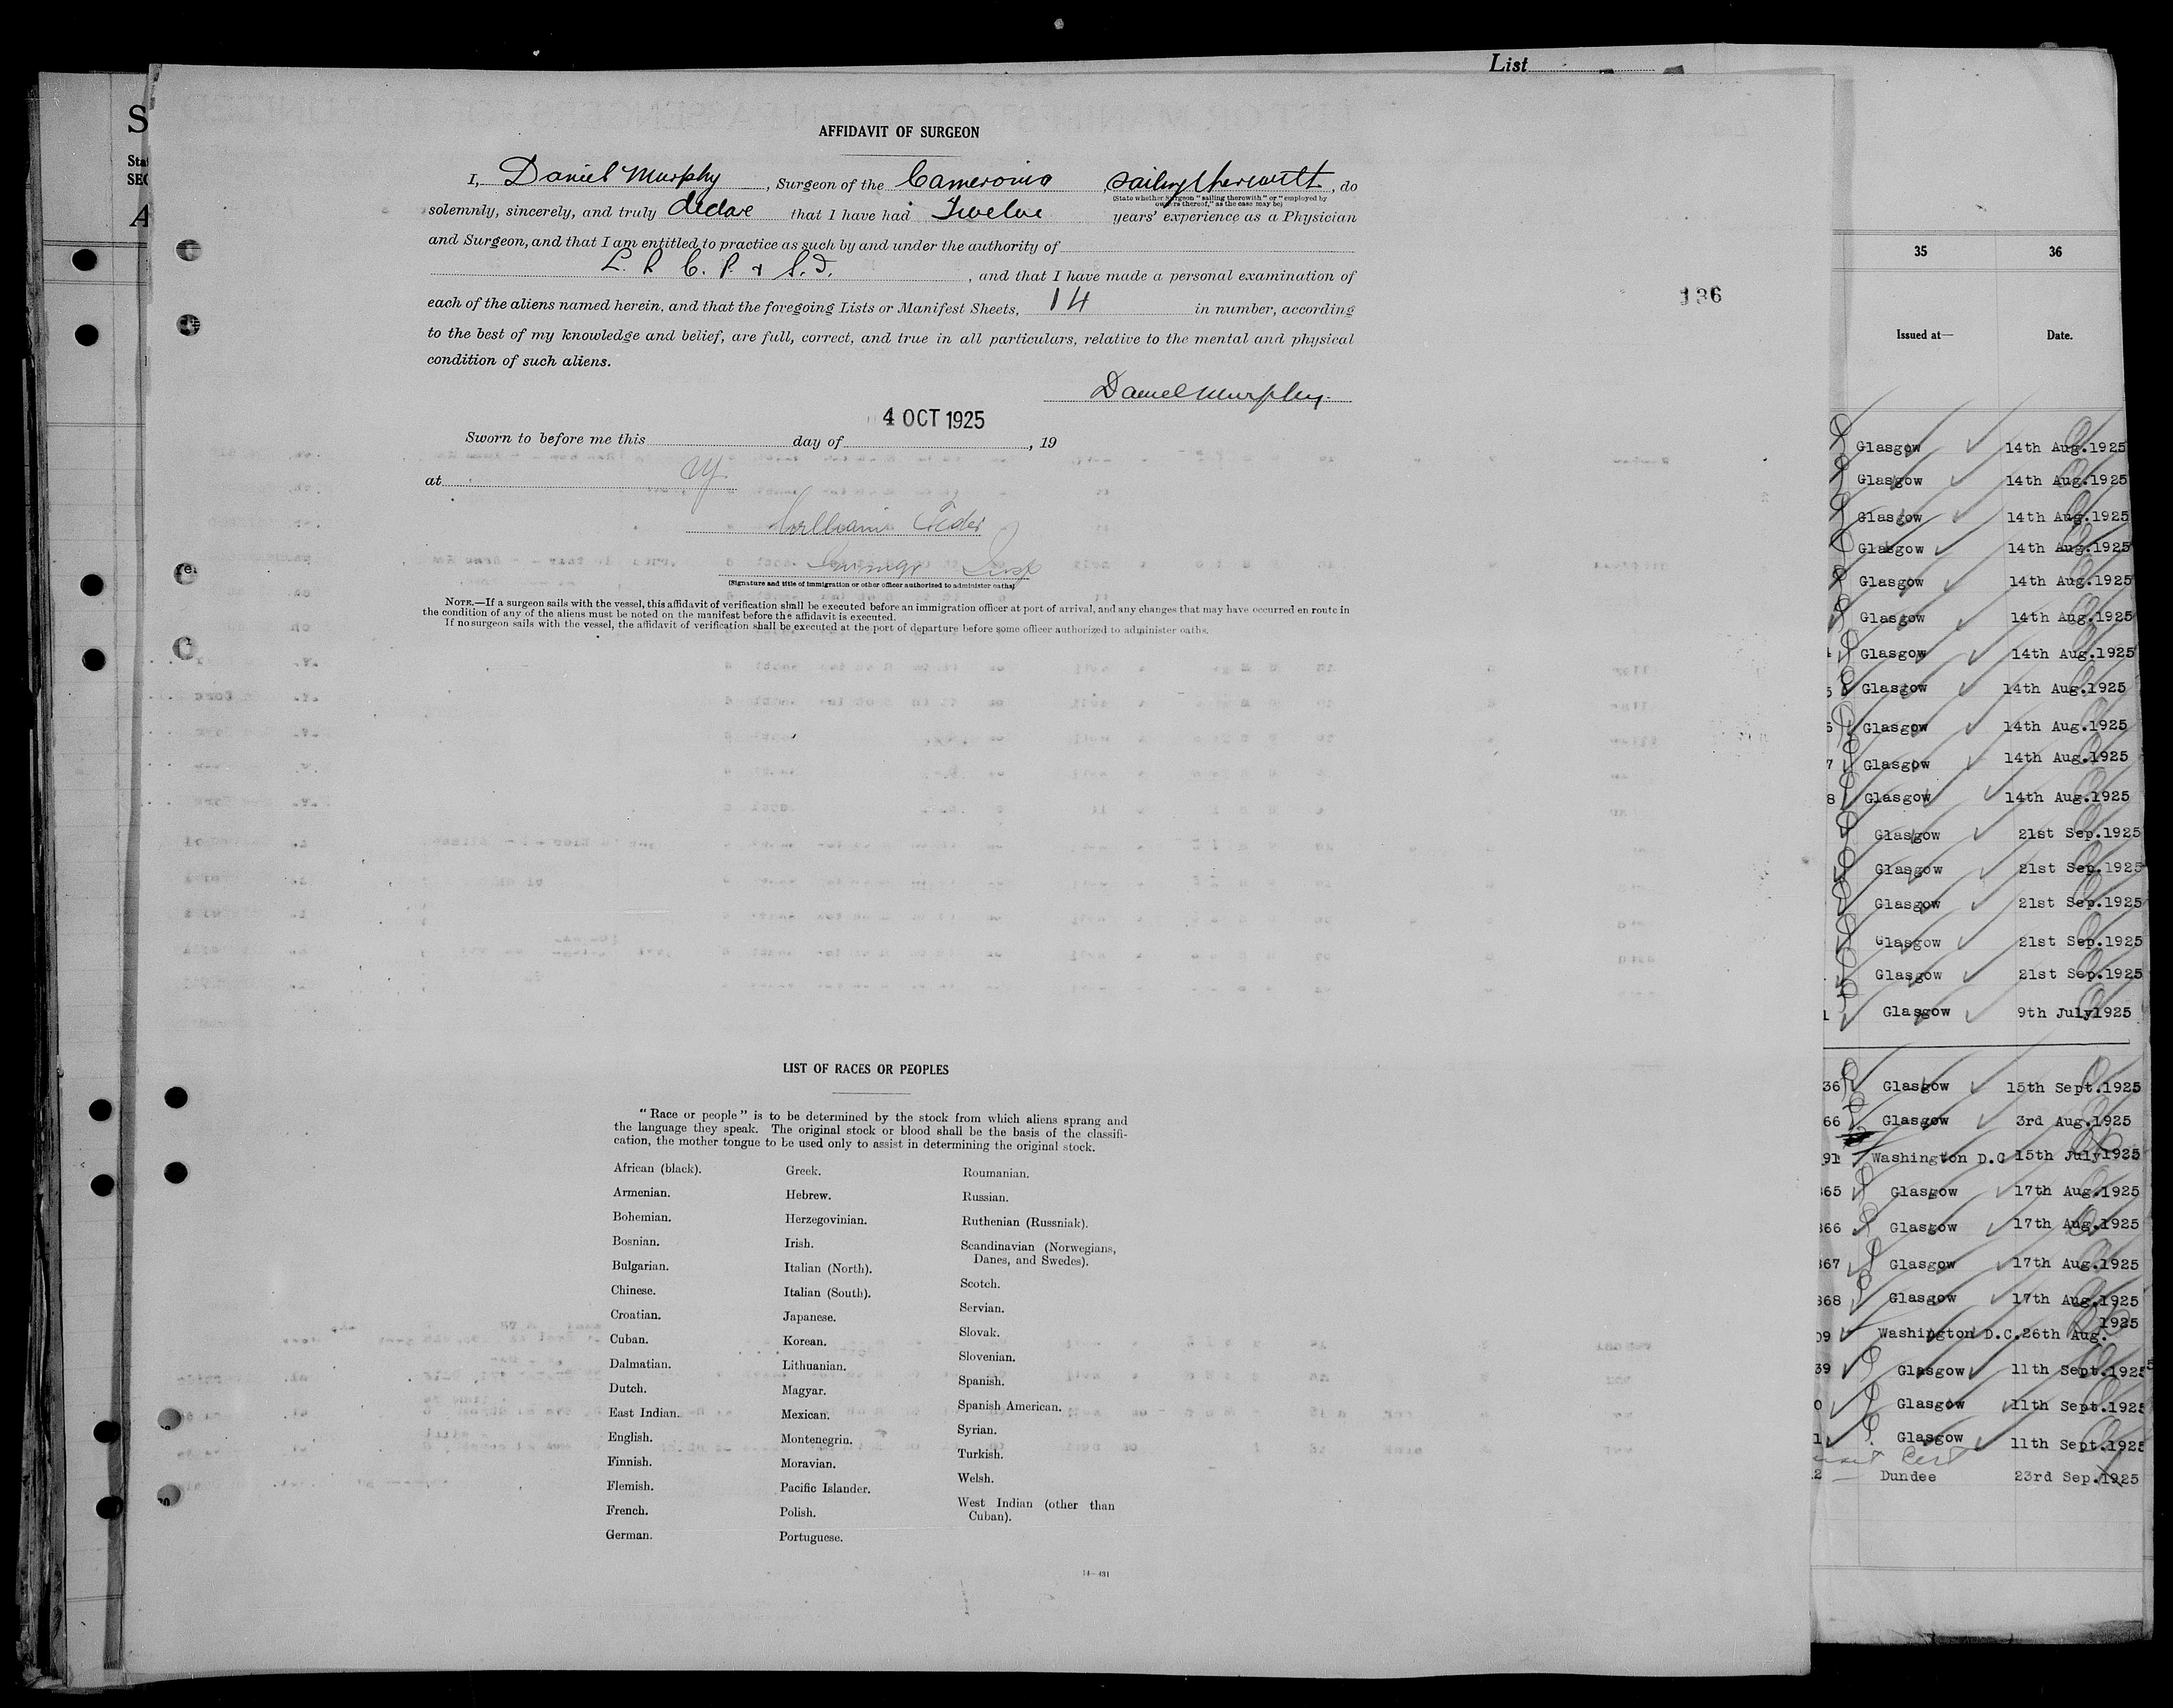 List
AFFIDAVIT OF SURGEON
I, Daniel Murphy, Surgeon of the Cameronia, sailing therewith, do
(State whether Surgeon "sailing therewith" or "employed by
owners thereof," as the case may be)
solemnly, sincerely, and truly declare that I have had Twelve years' experience as a Physician
and Surgeon, and that I am entitled to practice as such by and under the authority of
L. R. C. P. & S. I., and that I have made a personal examination of
each of the aliens named herein, and that the foregoing Lists or Manifest Sheets, 14 in number, according
to the best of my knowledge and belief, are full, correct, and true in all particulars, relative to the mental and physical
condition of such aliens.
Daniel Murphy.
4 OCT 1925
Sworn to before me this day of , 19
at
William
Insp
(Signature and title of immigration or other officer authorized to administer oaths)
NOTE.—If a surgeon sails with the vessel, this affidavit of verification shall be executed before an immigration officer at port of arrival, and any changes that may have occurred en route in
the condition of any of the aliens must be noted on the manifest before the affidavit is executed.
If no surgeon sails with the vessel, the affidavit of verification shall be executed at the port of departure before some officer authorized to administer oaths.
136
LIST OF RACES OR PEOPLES
"Race or people" is to be determined by the stock from which aliens sprang and
the language they speak. The original stock or blood shall be the basis of the classifi-
cation, the mother tongue to be used only to assist in determining the original stock.
African (black).
Armenian.
Bohemian.
Bosnian.
Bulgarian.
Chinese.
Croatian.
Cuban.
Dalmatian.
Dutch.
East Indian.
English.
Finnish.
Flemish.
French.
German.
Greek.
Hebrew.
Herzegovinian.
Irish.
Italian (North).
Italian (South).
Japanese.
Korean.
Lithuanian.
Magyar.
Mexican.
Montenegrin.
Moravian.
Pacific Islander.
Polish.
Portuguese.
Roumanian.
Russian.
Ruthenian (Russniak).
Scandinavian (Norwegians,
Danes, and Swedes).
Scotch.
Servian.
Slovak.
Slovenian.
Spanish.
Spanish American.
Syrian.
Turkish.
Welsh.
West Indian (other than
Cuban).
14—431
35 36
Issued at— Date.
Glasgow 14th Aug.1925
Glasgow 14th Aug.1925
Glasgow 14th Aug.1925
Glasgow 14th Aug.1925
Glasgow 14th Aug.1925
Glasgow 14th Aug.1925
Glasgow 14th Aug.1925
Glasgow 14th Aug.1925
Glasgow 14th Aug.1925
7 Glasgow 14th Aug.1925
8 Glasgow 14th Aug.1925
Glasgow 21st Sep.1925
Glasgow 21st Sep.1925
Glasgow 21st Sep.1925
Glasgow 21st Sep.1925
Glasgow 21st Sep.1925
1 Glasgow 9th July1925
36 Glasgow 15th Sept.1925
66 Glasgow 3rd Aug.1925
91 Washington D.C 15th July1925
365 Glasgow 17th Aug.1925
366 Glasgow 17th Aug.1925
367 Glasgow 17th Aug.1925
368 Glasgow 17th Aug.1925
09 Washington D.C.26th Aug. 1925
39 Glasgow 11th Sept.1925
0 Glasgow 11th Sept.1925
1 Glasgow 11th Sept.1925
2 Dundee 23rd Sep.1925